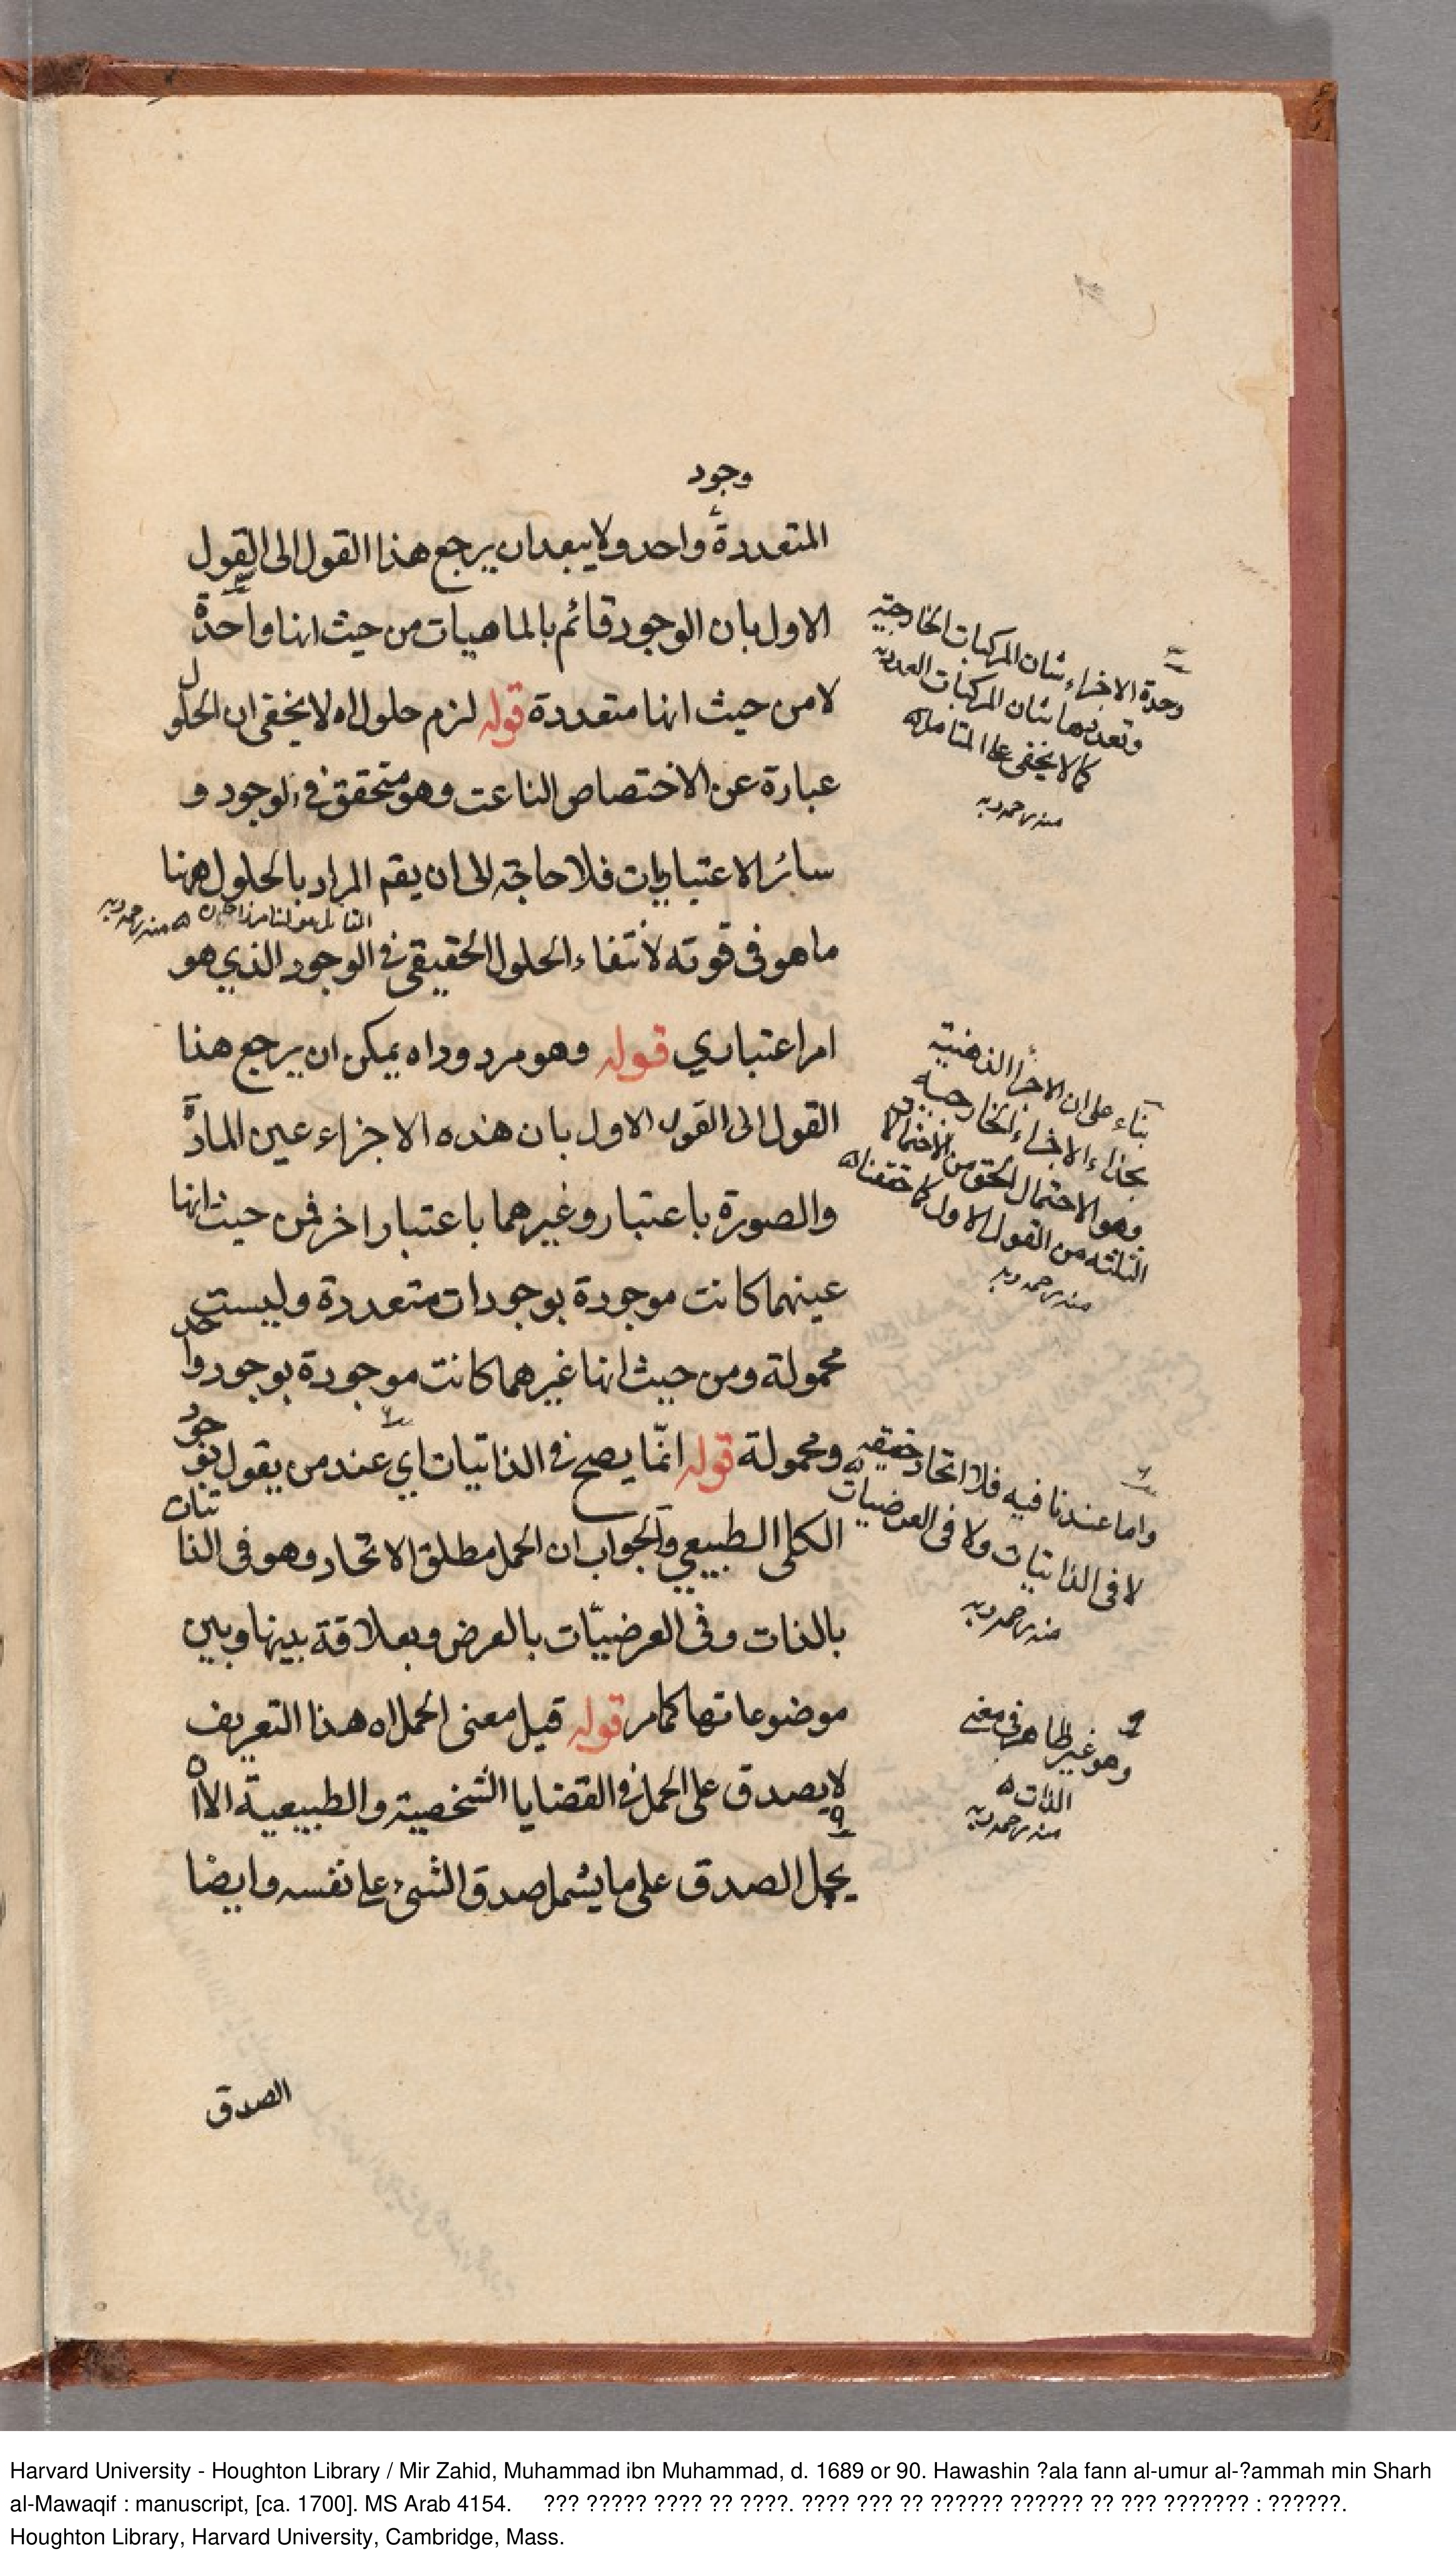 وجود
المتعددة واحد ولا يبعد ان يرجع هذا القول الى القول
الاول بان الوجود قائم بالماهيات من حيث انها واحدة
لا من حيث انها متعددة قوله لزم حلول اه لا يخفى ان الحلول
عبارة عن الاختصاص الناعت وهو متحقق في الوجود و
سائر الاعتباريات فلا حاجة الى ان يقم المراد بالحلول ههنا
ما هو في قوته لانتفاء الحلول الحقيقي في الوجود الذي هو
امر اعتباري قوله وهو مردود اه يمكن ان يرجع هذا
القول الى القول الاول بان هذه الاجزاء عين المادة
والصورة باعتبار وغيرهما باعتبار اخر فمن حيث انها
عينهما كانت موجودة بوجودات متعددة وليست
محمولة ومن حيث انها غيرهما كانت موجودة بوجود واحد
ومحمولة قوله انّما يصح في الذاتيات اي عند من يقول بوجود
الكلي الطبيعي والجواب ان الحمل مطلق الاتحاد وهو في الذاتيات
بالذات وفي العرضيّات بالعرض وبعلاقة بينها وبين
موضوعاتها كما مر قوله قيل معنى الحمل اه هذا التعريف
لا يصدق على الحمل في القضايا الشخصية والطبيعية الا ان
يحمل الصدق على ما يشمل صدق الشيء على نفسه وايضا
الصدق
وحدة الاجزاء شان المركبات الخارجية
وتعددها شان المركبات العددية
كما لا يخفى على المتامل
منه رحمه ربه
بناء على ان الاجزاء الذهنية
بحذاء الاجزاء الخارجية
وهو الاحتمال الحق من الاحتمالات
الثلثة من القول الاول كما حققناه
منه رحمه ربه
واما عندنا فيه فلا اتحاد حقيقة
لا في الذاتيات ولا في العرضيات
منه رحمه ربه
وهو غير ظاهر في معنى
الذات
منه رحمه ربه
Harvard University - Houghton Library / Mir Zahid, Muhammad ibn Muhammad, d. 1689 or 90. Hawashin ?ala fann al-umur al-?ammah min Sharh
al-Mawaqif : manuscript, [ca. 1700]. MS Arab 4154. ??? ????? ???? ?? ????. ???? ??? ?? ?????? ?????? ?? ??? ??????? : ??????.
Houghton Library, Harvard University, Cambridge, Mass.